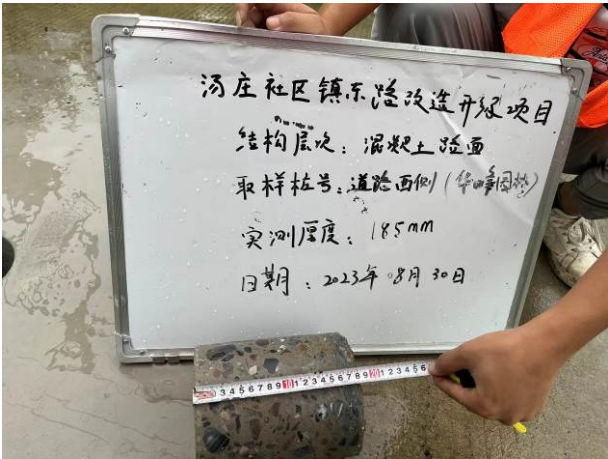 汤庄社区镇东路改造升级项目
结构层次：混凝土路面
取样桩号：道路西侧（华峰围挡）
实测厚度：185mm
日期：2023年08月30日
3 4 5 6 7 8 9 10 1 2 3 4 5 6 7 8 9 20 1 2 3 4 5 6